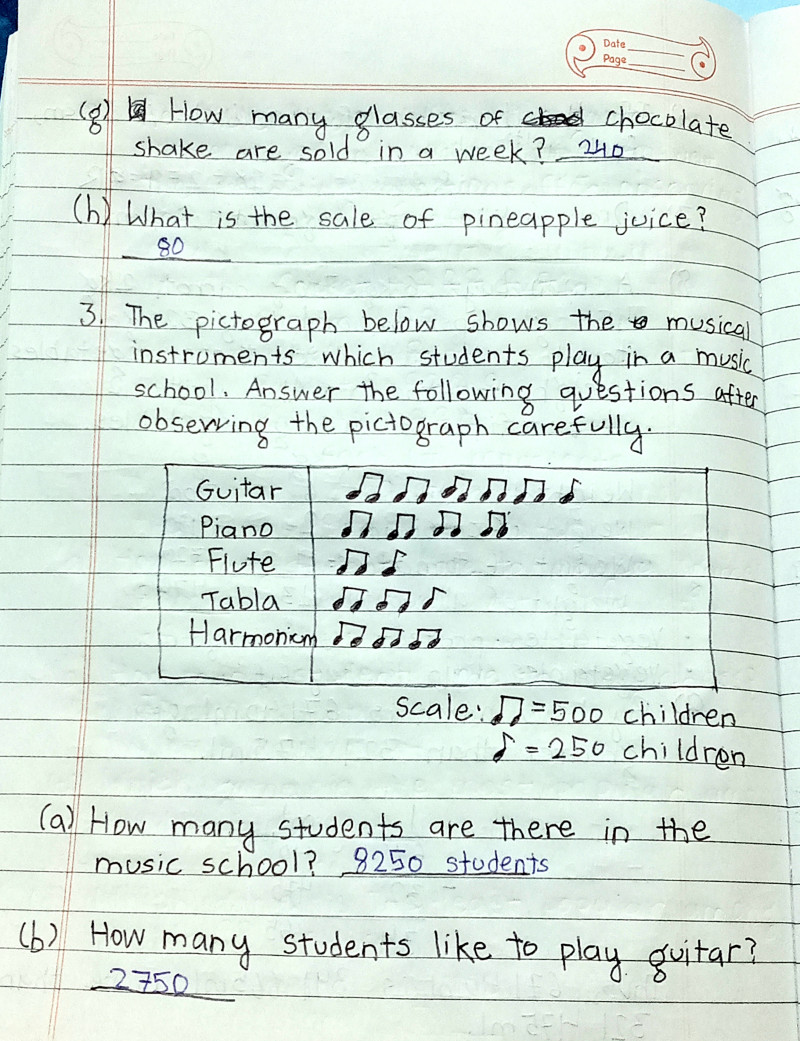 Date
Page
(g) How many glasses of chocolate
shake are sold in a week? 240
(h) What is the sale of pineapple juice?
80
3. The pictograph below shows the musical
instruments which students play in a music
school. Answer the following questions after
observing the pictograph carefully.
Guitar
Piano
Flute
Tabla
Harmonium
Scale: ♫ = 500 children
♪ = 250 children
(a) How many students are there in the
music school? 8250 students
(b) How many students like to play guitar?
2750